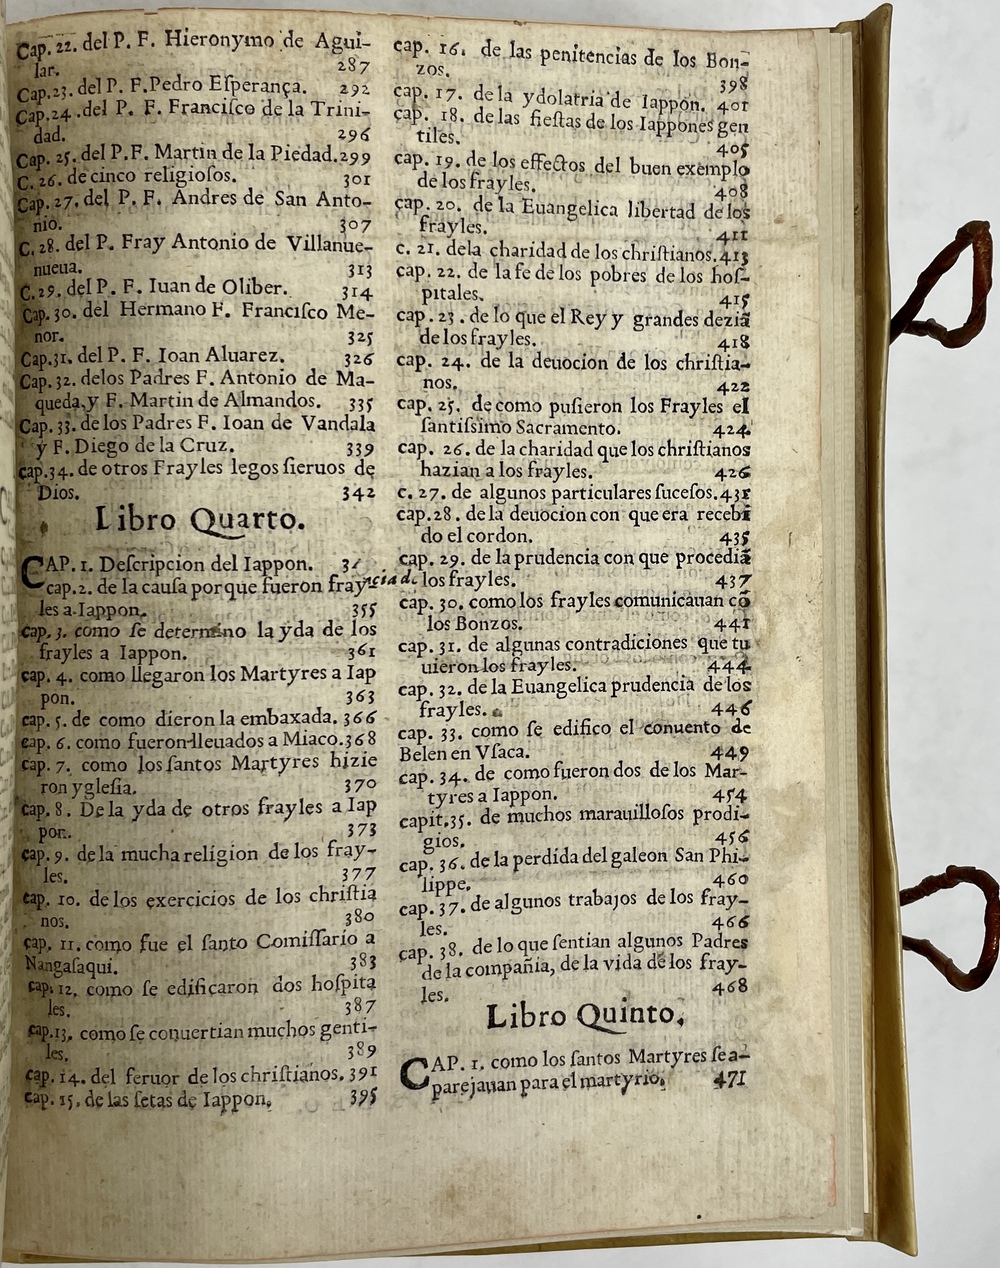 Cap. 22. del P. F. Hieronymo de Agui-
lar. 287
Cap.23. del P. F.Pedro Eſperança. 292
Cap.24.del P. F. Franciſco de la Trini-
dad. 296
Cap. 25. del P.F. Martin de la Piedad.299
C. 26. de cinco religioſos. 301
Cap. 27. del P. F. Andres de San Anto-
nio. 307
C. 28. del P. Fray Antonio de Villanue-
nueua. 313
C. 29. del P. F. Iuan de Oliber. 314
Cap. 30. del Hermano F. Franciſco Me-
nor. 325
Cap.31. del P. F. Ioan Aluarez. 326
Cap. 32. delos Padres F. Antonio de Ma-
queda,y F. Martin de Almandos. 335
Cap. 33. de los Padres F. Ioan de Vandala
y F. Diego de la Cruz. 339
cap.34. de otros Frayles legos ſieruos de
Dios. 342
Libro Quarto.
CAP. 1. Deſcripcion del Iappon.
cap.2. de la cauſa porque fueron fray
les a Iappon. 355
cap. 3. como ſe determino la yda de los
frayles a Iappon. 361
cap. 4. como llegaron los Martyres a Iap
pon. 363
cap. 5. de como dieron la embaxada. 366
cap. 6. como fueron lleuados a Miaco.368
cap. 7. como los ſantos Martyres hizie
ron ygleſia. 370
cap. 8. De la yda de otros frayles a Iap
pon. 373
cap. 9. de la mucha religion de los fray-
les. 377
cap. 10. de los exercicios de los chriſtia
nos. 380
cap. 11. como fue el ſanto Comiſſario a
Nangaſaqui. 383
cap. 12. como ſe edificaron dos hoſpita
les. 387
cap.13. como ſe conuertian muchos genti-
les. 389
cap. 14. del feruor de los chriſtianos. 391
cap. 15. de las ſetas de Iappon. 395
cap. 16. de las penitencias de los Bon-
zos. 398
cap. 17. de la ydolatria de Iappon. 401
cap. 18. de las fieſtas de los Iappones gen
tiles. 405
cap. 19. de los effectos del buen exemplo
de los frayles. 408
cap. 20. de la Euangelica libertad de los
frayles. 411
c. 21. dela charidad de los chriſtianos.413
cap. 22. de la fe de los pobres de los hoſ-
pitales. 415
cap. 23. de lo que el Rey y grandes deziã
de los frayles. 418
cap. 24. de la deuocion de los chriſtia-
nos. 422
cap. 25. de como puſieron los Frayles el
ſantiſsimo Sacramento. 424
cap. 26. de la charidad que los chriſtianos
hazian a los frayles. 426
c. 27. de algunos particulares ſuceſos.431
cap.28. de la deuocion con que era recebi
do el cordon. 435
cap. 29. de la prudencia con que procediã
los frayles. 437
cap. 30. como los frayles comunicauan cõ
los Bonzos. 441
cap. 31. de algunas contradiciones que tu
uieron los frayles. 444
cap. 32. de la Euangelica prudencia de los
frayles. 446
cap. 33. como ſe edifico el conuento de
Belen en Vſaca. 449
cap. 34. de como fueron dos de los Mar-
tyres a Iappon. 454
capit.35. de muchos marauilloſos prodi-
gios. 456
cap. 36. de la perdida del galeon San Phi-
lippe. 460
cap. 37. de algunos trabajos de los fray-
les. 466
cap. 38. de lo que ſentian algunos Padres
de la compañia, de la vida de los fray-
les. 468
Libro Quinto.
CAP. 1. como los ſantos Martyres ſe a-
parejauan para el martyrio. 471